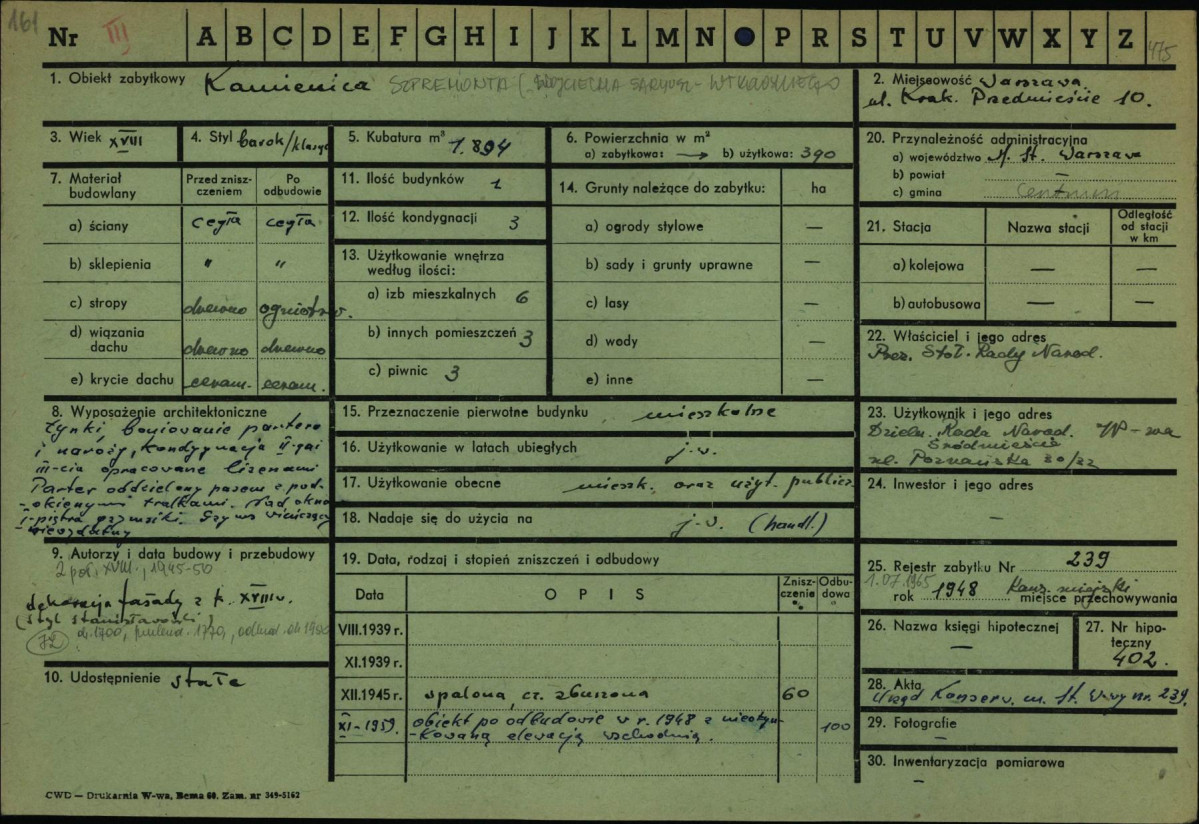 161
Nr III A B C D E F G H I J K L M N P R S T U V W X Y Z
475
1. Obiekt zabytkowy Kamienica SZPREMONTA (WOJCIECHA SARYUSZ-
2. Miejscowość Warszawa
ul. Krak. Przedmieście 10.
3. Wiek XVIII
4. Styl barok/klasyc
5. Kubatura m³ 1.894
6. Powierzchnia w m²
a) zabytkowa: → b) użytkowa: 390
20. Przynależność administracyjna
a) województwo M. St. Warszawa
b) powiat —
c) gmina Centrum
7. Materiał budowlany
Przed zniszczeniem
Po odbudowie
a) ściany cegła cegła
b) sklepienia " "
c) stropy drewno ogniotrw.
d) wiązania dachu drewno drewno
e) krycie dachu ceram. ceram.
11. Ilość budynków 1
12. Ilość kondygnacji 3
13. Użytkowanie wnętrza
według ilości:
a) izb mieszkalnych 6
b) innych pomieszczeń 3
c) piwnic 3
14. Grunty należące do zabytku: ha
a) ogrody stylowe —
b) sady i grunty uprawne —
c) lasy —
d) wody —
e) inne —
21. Stacja
Nazwa stacji
Odległość
od stacji
w km
a) kolejowa — —
b) autobusowa — —
22. Właściciel i jego adres
Prez. Stoł. Rady Narod.
8. Wyposażenie architektoniczne
Tynki, boniowanie parteru
i naroży, kondygnacja II-ga i
III-cia opracowane lizenami
Parter oddzielony pasem z pod-
-okiennymi tralkami. Nad okna
I-piętra gzymsiki. Gzyms wieńczący
15. Przeznaczenie pierwotne budynku mieszkalne
16. Użytkowanie w latach ubiegłych j.w.
17. Użytkowanie obecne mieszk. oraz użyt. publicz.
18. Nadaje się do użycia na j.w. (handl.)
23. Użytkownik i jego adres
Dzieln. Rada Narod. W-wa
Śródmieście
ul. Poznańska
24. Inwestor i jego adres
—
9. Autorzy i data budowy i przebudowy
2 poł. XVIII., 1945-50
dekoracja fasady z k. XVIII w.
(styl stanisławowski)
10. Udostępnienie stałe
19. Data, rodzaj i stopień zniszczeń i odbudowy
Data
OPIS
Zniszczenie %
Odbudowa
VIII.1939 r.
XI.1939 r.
XII.1945 r. spalona, cz. zburzona 60
XI-1959. obiekt po odbudowie w r. 1948 z nieotyn-
-kowaną elewacją wschodnią. 100
25. Rejestr zabytku Nr 239
1.07.1965
rok 1948 Kons. miejski miejsce przechowywania
26. Nazwa księgi hipotecznej
—
27. Nr hipoteczny
402.
28. Akta Urząd Konserw. m. St. W-wy nr. 239.
29. Fotografie
—
30. Inwentaryzacja pomiarowa
—
CWD — Drukarnia W-wa, Bema 60. Zam. nr 349-5162